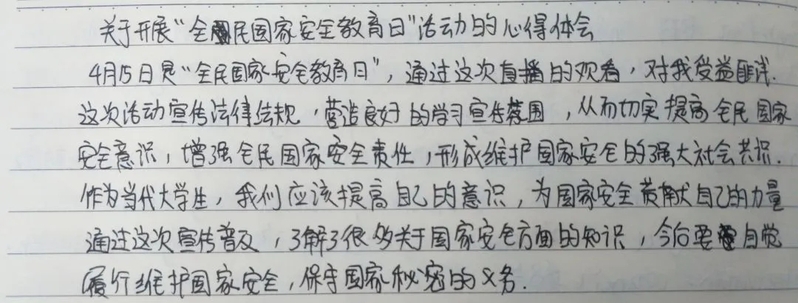 关于开展"全民国家安全教育日"活动的心得体会
4月15日是"全民国家安全教育日",通过这次直播的观看,对我受益匪浅.
这次活动宣传法律法规,营造良好的学习宣传氛围,从而切实提高全民国家
安全意识,增强全民国家安全责任,形成维护国家安全的强大社会共识.
作为当代大学生,我们应该提高自己的意识,为国家安全贡献自己的力量
通过这次宣传普及,了解了很多关于国家安全方面的知识,今后要自觉
履行维护国家安全,保守国家秘密的义务.